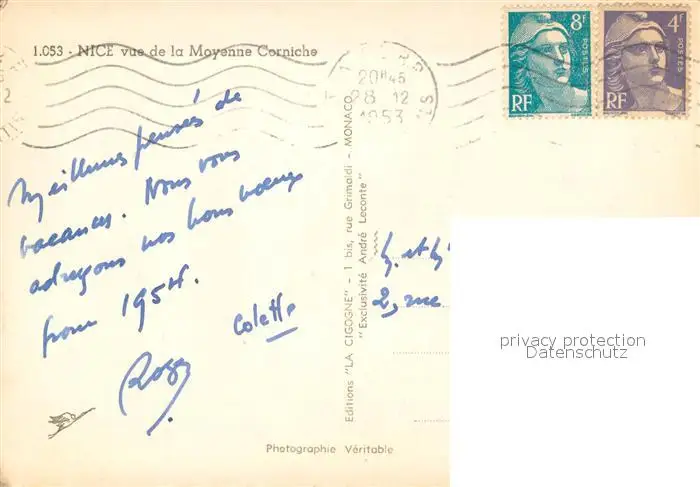 1.053 - NICE vue de la Moyenne Corniche
8F
POSTES
RF
4F
POSTES
RF
20H45
28 12
1953
Meilleures pensés de
vacances. Nous vous
adressons nos bons voeux
pour 1954.
Colette
Roger
Editions "LA CIGOGNE" - 1 bis, rue Grimaldi - MONACO
"Exclusivité André Leconte"
M. et M
2, rue
privacy protection
Datenschutz
Photographie Véritable